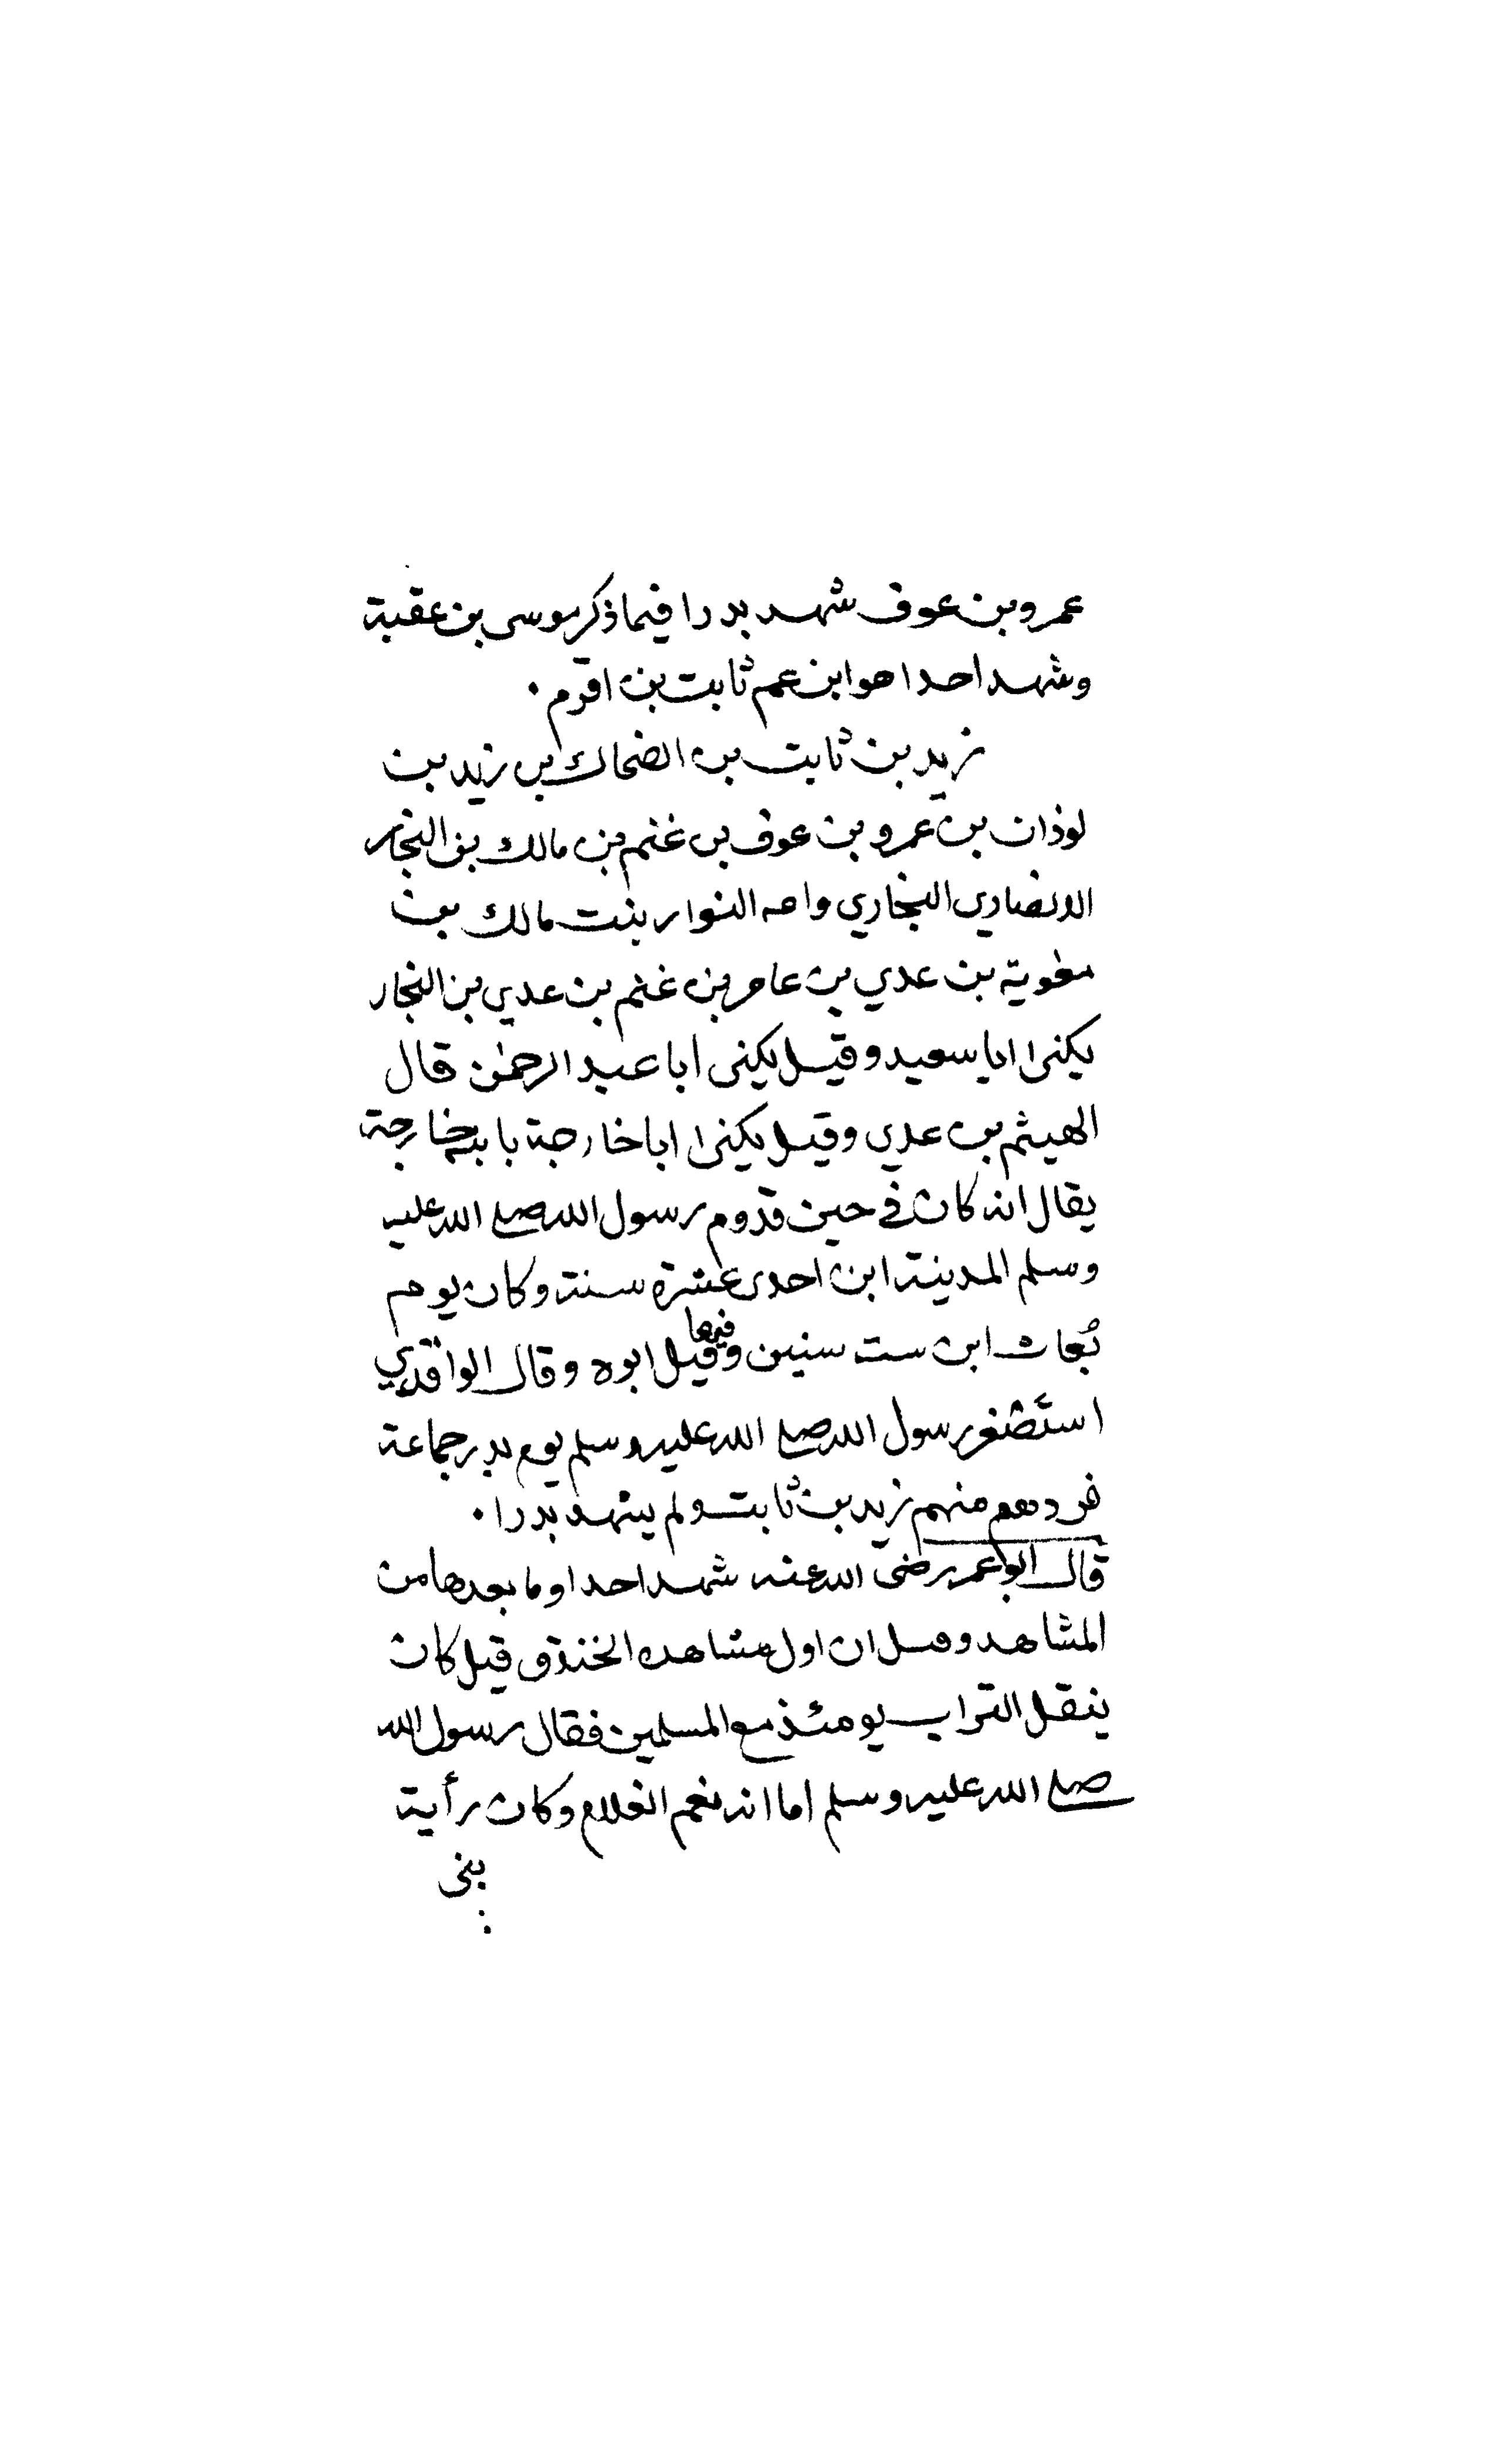 عمرو بن عوف شهد بدرا فيما ذكر موسى بن عقبة
وشهد احدا هو ابن عم ثابت بن اقرم .
زيد بن ثابت بن الضحاك بن زيد بن
لوذان بن عمرو بن عوف بن غنم بن مالك بن النجار
الانصاري النجاري وامه النوار بنت مالك بن
معوية بن عدي بن عامر بن غنم بن عدي بن النجار
يكنى ابا سعيد وقيل يكنى ابا عبد الرحمن قال
الهيثم بن عدي وقيل يكنى ابا خارجة بابنه خارجة
يقال انه كان في حين قدوم رسول الله صلى الله عليه
وسلم المدينة ابن احدى عشرة سنة وكان يوم
بُعاث ابن ست سنين وفيها قيل ابوه وقال الواقدي
استَصْغر رسول الله صلى الله عليه وسلم يوم بدر جماعة
فردهم منهم زيد بن ثابت ولم يشهد بدرا .
قال ابو عمر رضى الله عنه شهد احدا وما بعدها من
المشاهد وقيل ان اول مشاهده الخندق قيل كان
ينقل التراب يومئذ مع المسلمين فقال رسول الله
صلى الله عليه وسلم اما انه نعم الغلام وكان رأية
بنى